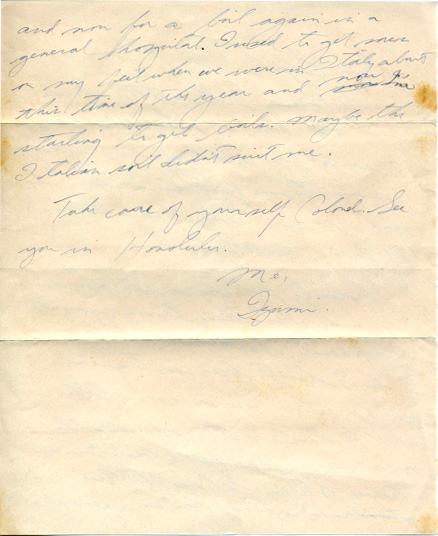 and now for a boil again in a
general hospital. I used to get sores
on my feet when we were in Italy about
this time of the year and now I'm
starting to get boils. Maybe the
Italian soil didn't suit me.
Take care of yourself Colonel. See
you in Honolulu.
Me,